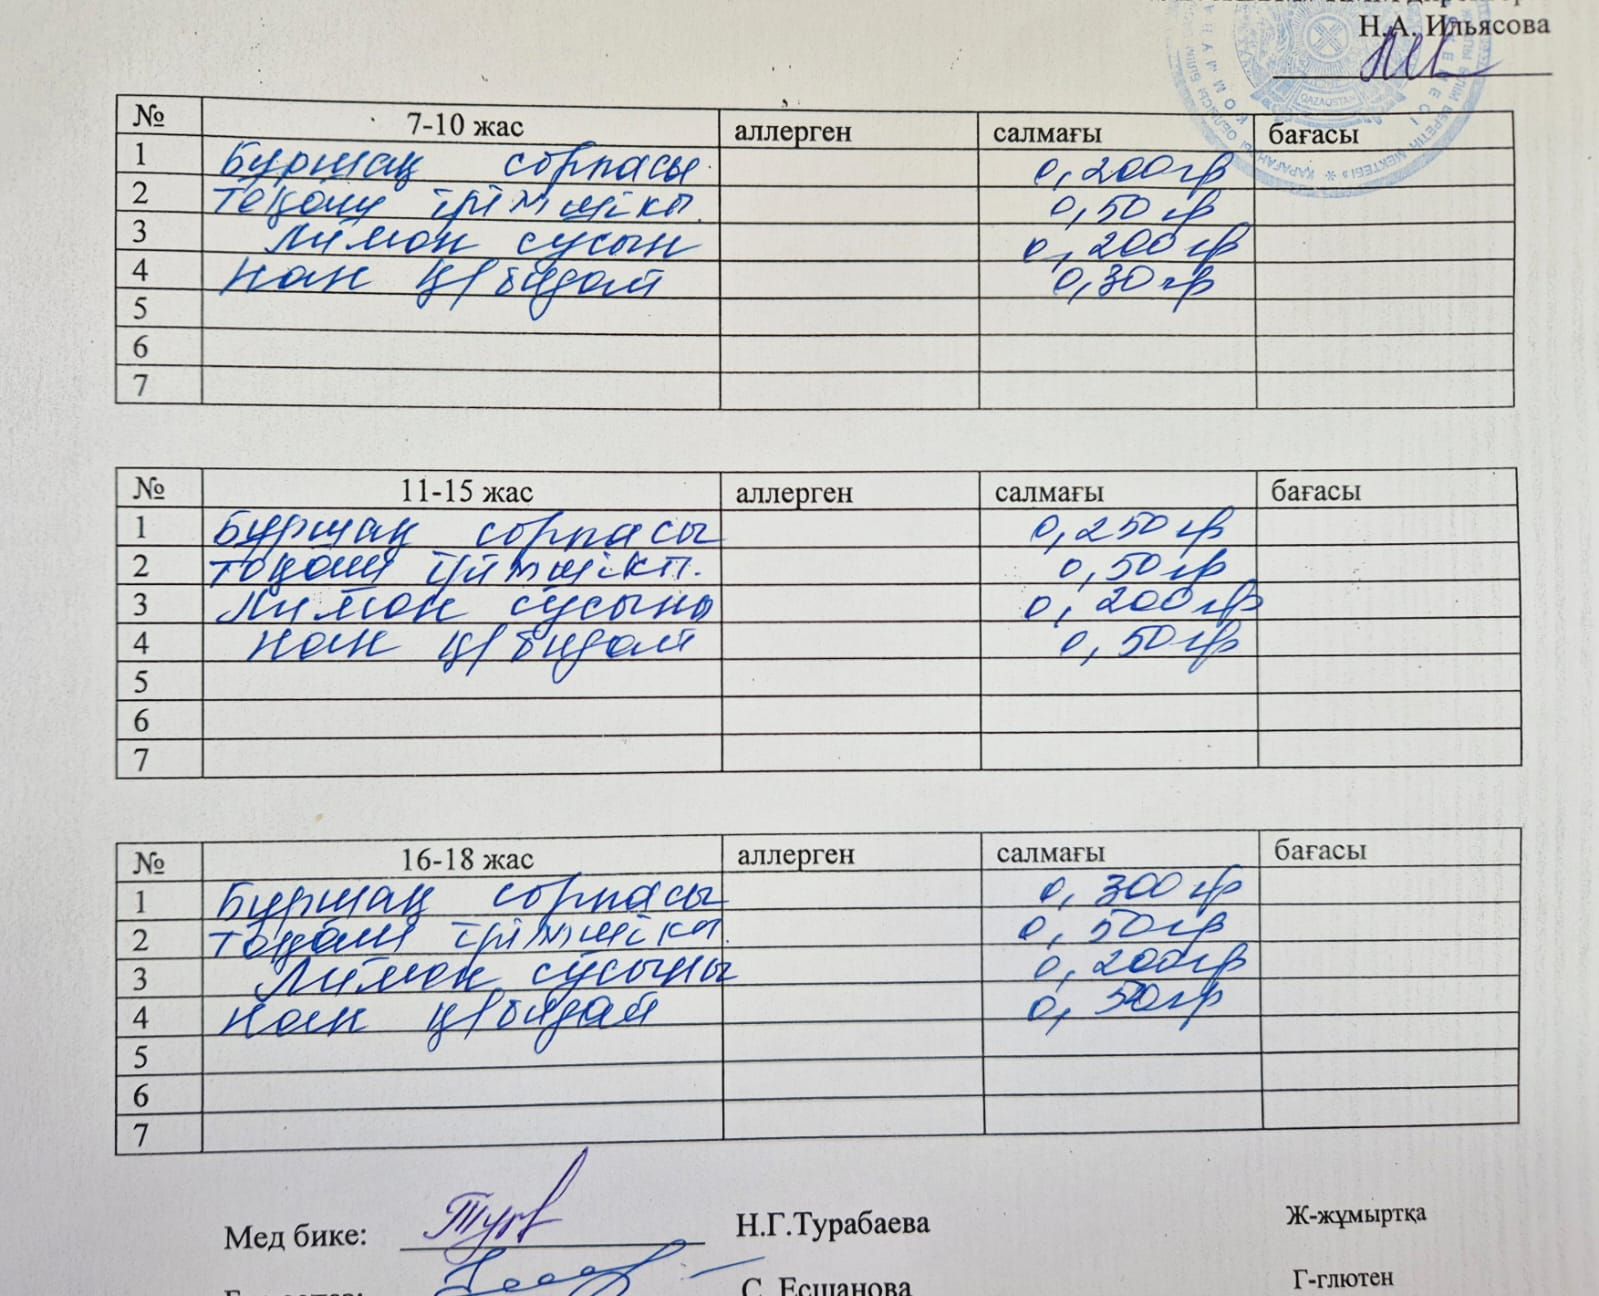 Н.А. Ильясова
№ 7-10 жас аллерген салмағы бағасы
1 Буршақ сорпасы 0,200гр
2 тоқаш ірімшікп. 0,50 гр
3 Лимон сусын 0,200гр
4 Нан қ/бидай 0,30 гр
5
6
7
№ 11-15 жас аллерген салмағы бағасы
1 Буршақ сорпасы 0,250 гр
2 тоқаш ірімшікп. 0,50гр
3 Лимон сусыны 0,200гр
4 Нан қ/бидай 0,50гр
5
6
7
№ 16-18 жас аллерген салмағы бағасы
1 Буршақ сорпасы 0,300 гр
2 тоқаш ірімшікп. 0,50гр
3 Лимон сусыны 0,200гр
4 Нан қ/бидай 0,50гр
5
6
7
Мед бике: Н.Г.Турабаева Ж-жұмыртқа
С. Есщанова Г-глютен